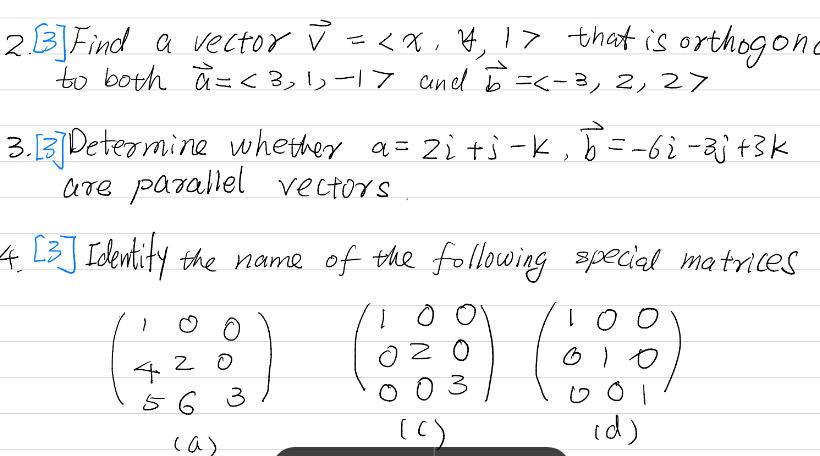 2. [3] Find a vector v⃗ = <x, y, 1> that is orthogon
to both a⃗ = <3, 1, -1> and b⃗ = <-3, 2, 2>
3. [3] Determine whether a = 2i + j - k, b⃗ = -6i - 3j + 3k
are parallel vectors.
4. [3] Identify the name of the following special matrices
1 0 0
4 2 0
5 6 3
(a)
1 0 0
0 2 0
0 0 3
(c)
1 0 0
0 1 0
0 0 1
(d)